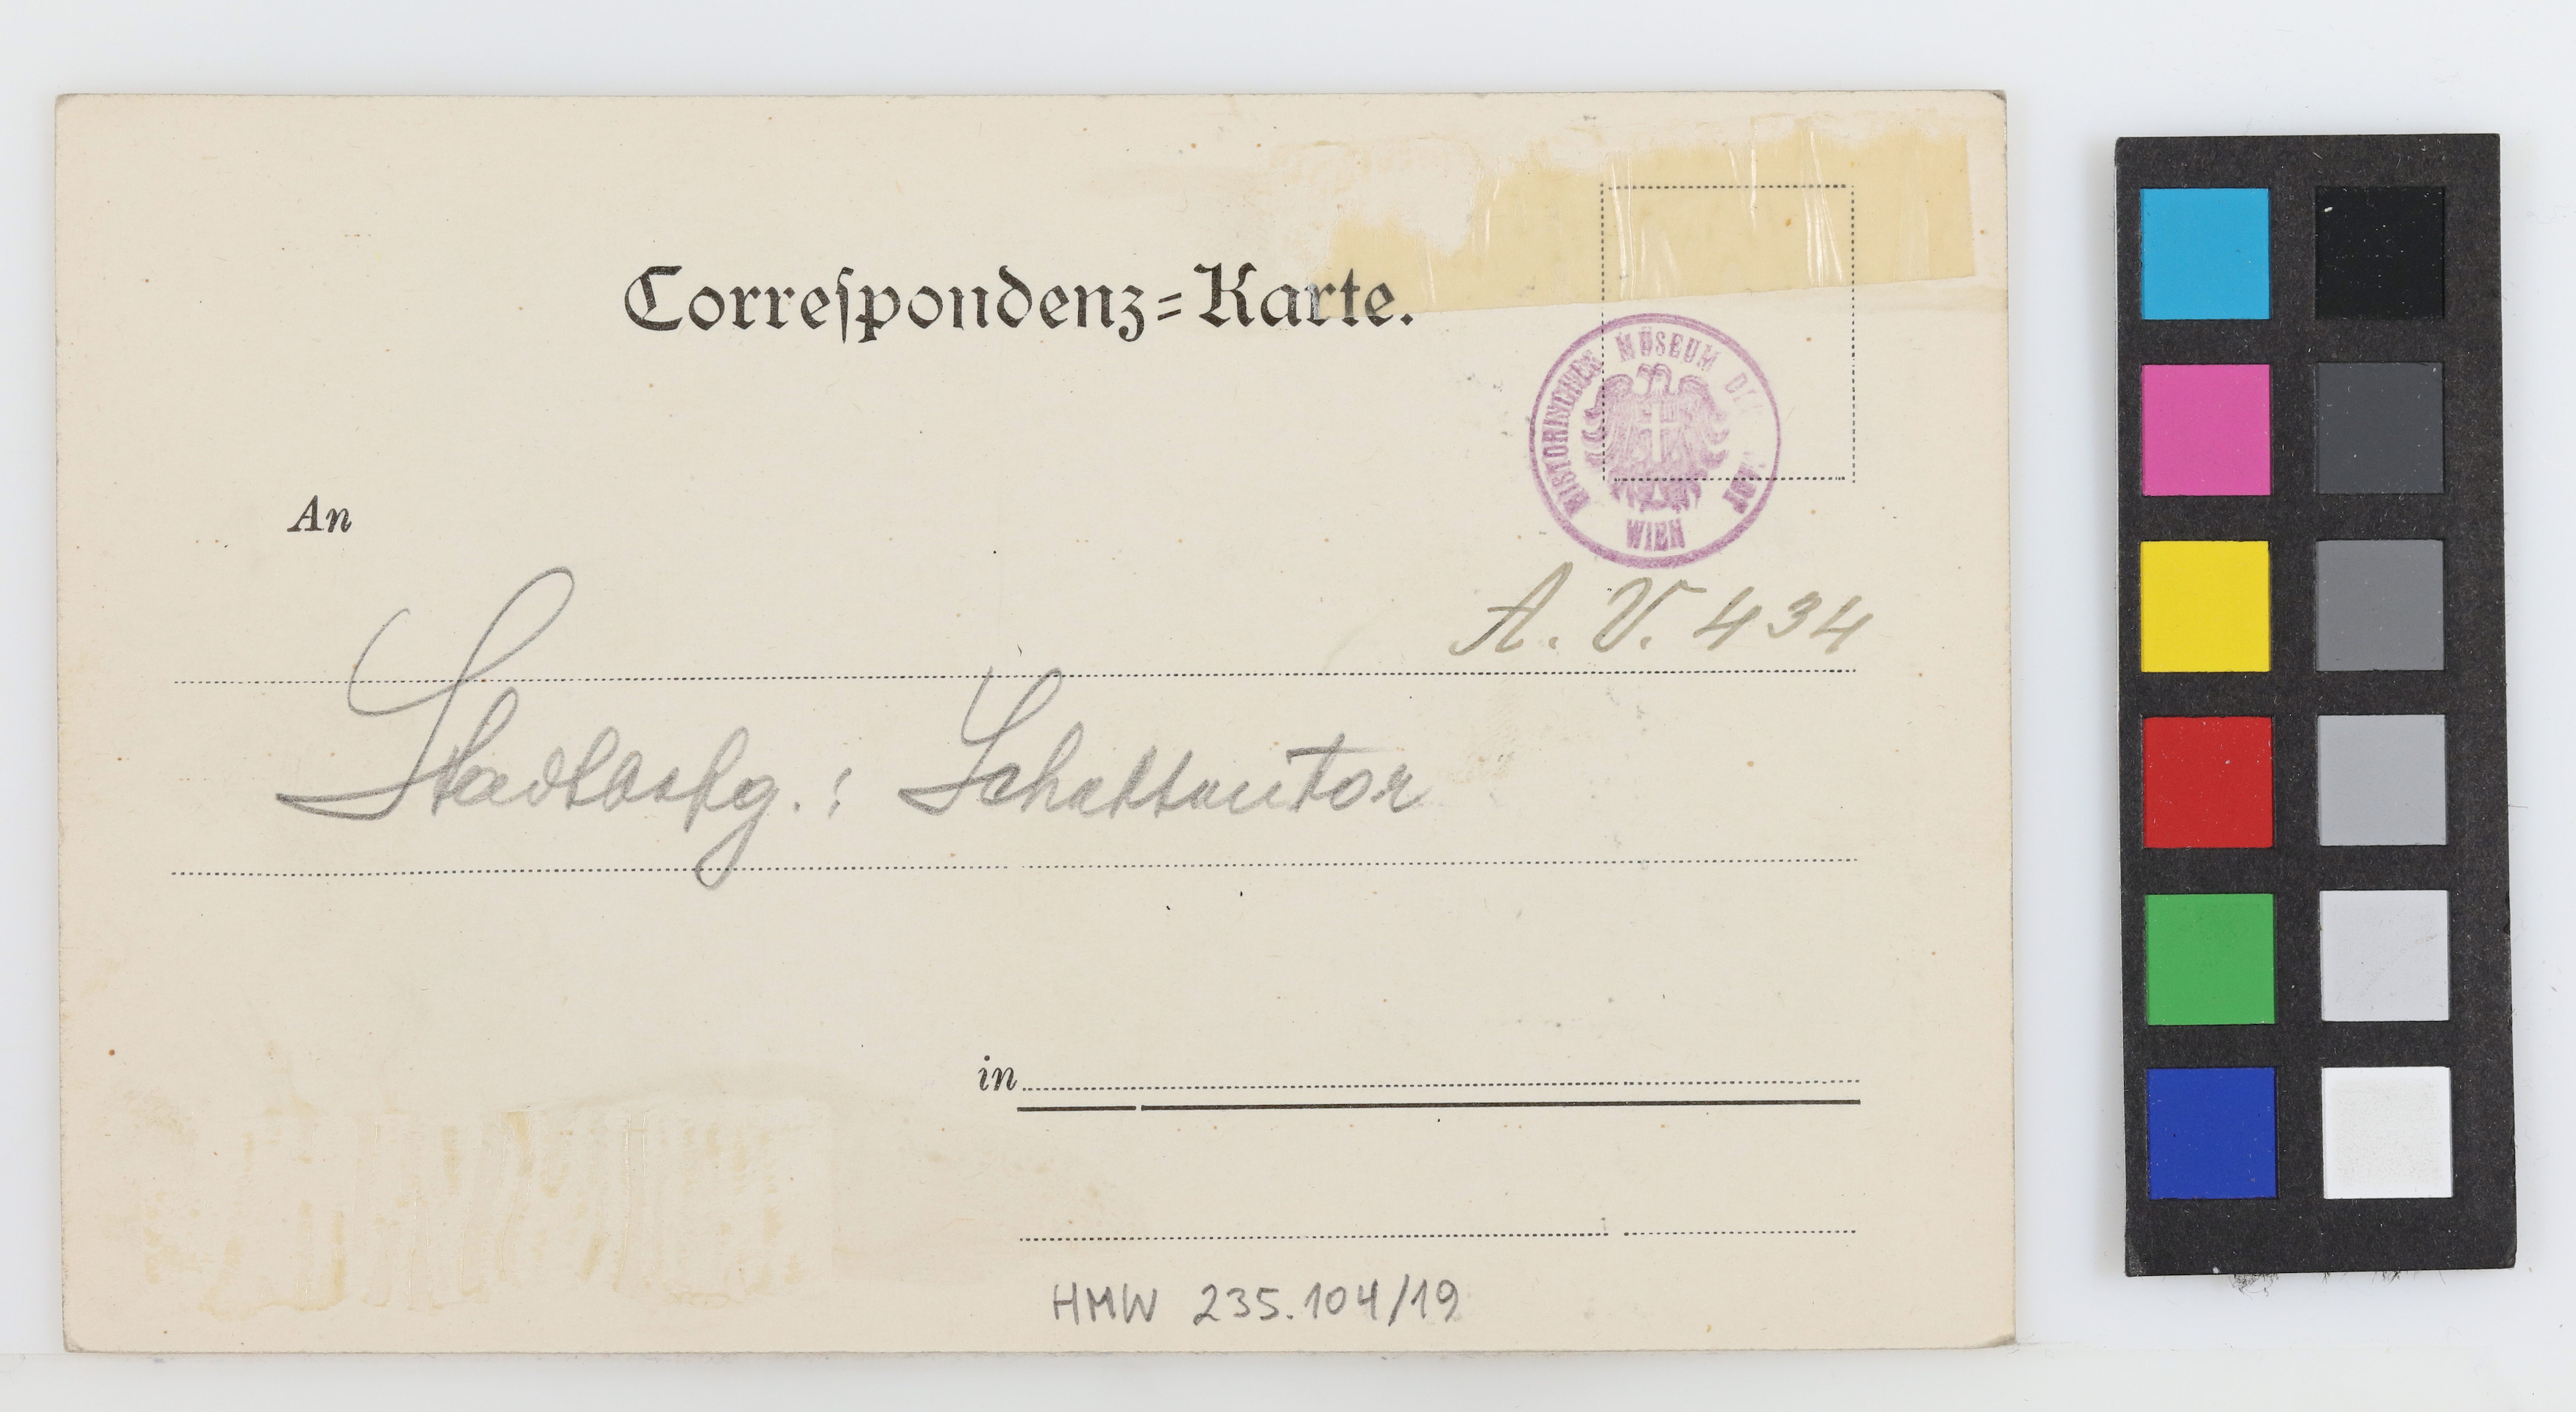 Correſpondenz=Karte.
HISTORISCHES MUSEUM DER STADT WIEN
An
A. V. 434
Schottentor
in
HMW 235.104/19